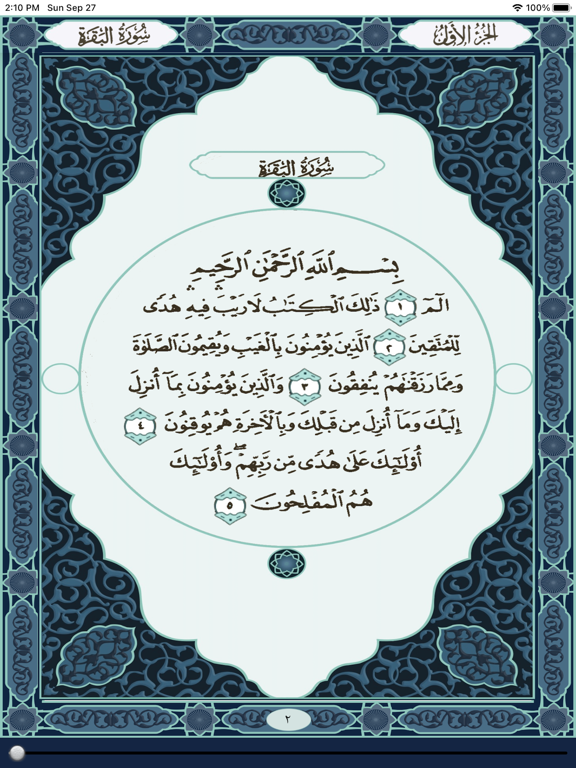 2:10 PM Sun Sep 27 100%
سُورَةُ البَقَرَةِ الجُزْءُ الأَوَّلُ
سُورَةُ البَقَرَةِ
بِسْمِ ٱللَّهِ ٱلرَّحْمَٰنِ ٱلرَّحِيمِ
الٓمٓ ١ ذَٰلِكَ ٱلْكِتَٰبُ لَا رَيْبَ ۛ فِيهِ ۛ هُدًى
لِّلْمُتَّقِينَ ٢ ٱلَّذِينَ يُؤْمِنُونَ بِٱلْغَيْبِ وَيُقِيمُونَ ٱلصَّلَوٰةَ
وَمِمَّا رَزَقْنَٰهُمْ يُنفِقُونَ ٣ وَٱلَّذِينَ يُؤْمِنُونَ بِمَآ أُنزِلَ
إِلَيْكَ وَمَآ أُنزِلَ مِن قَبْلِكَ وَبِٱلْءَاخِرَةِ هُمْ يُوقِنُونَ ٤
أُو۟لَٰٓئِكَ عَلَىٰ هُدًى مِّن رَّبِّهِمْ ۖ وَأُو۟لَٰٓئِكَ
هُمُ ٱلْمُفْلِحُونَ ٥
٢